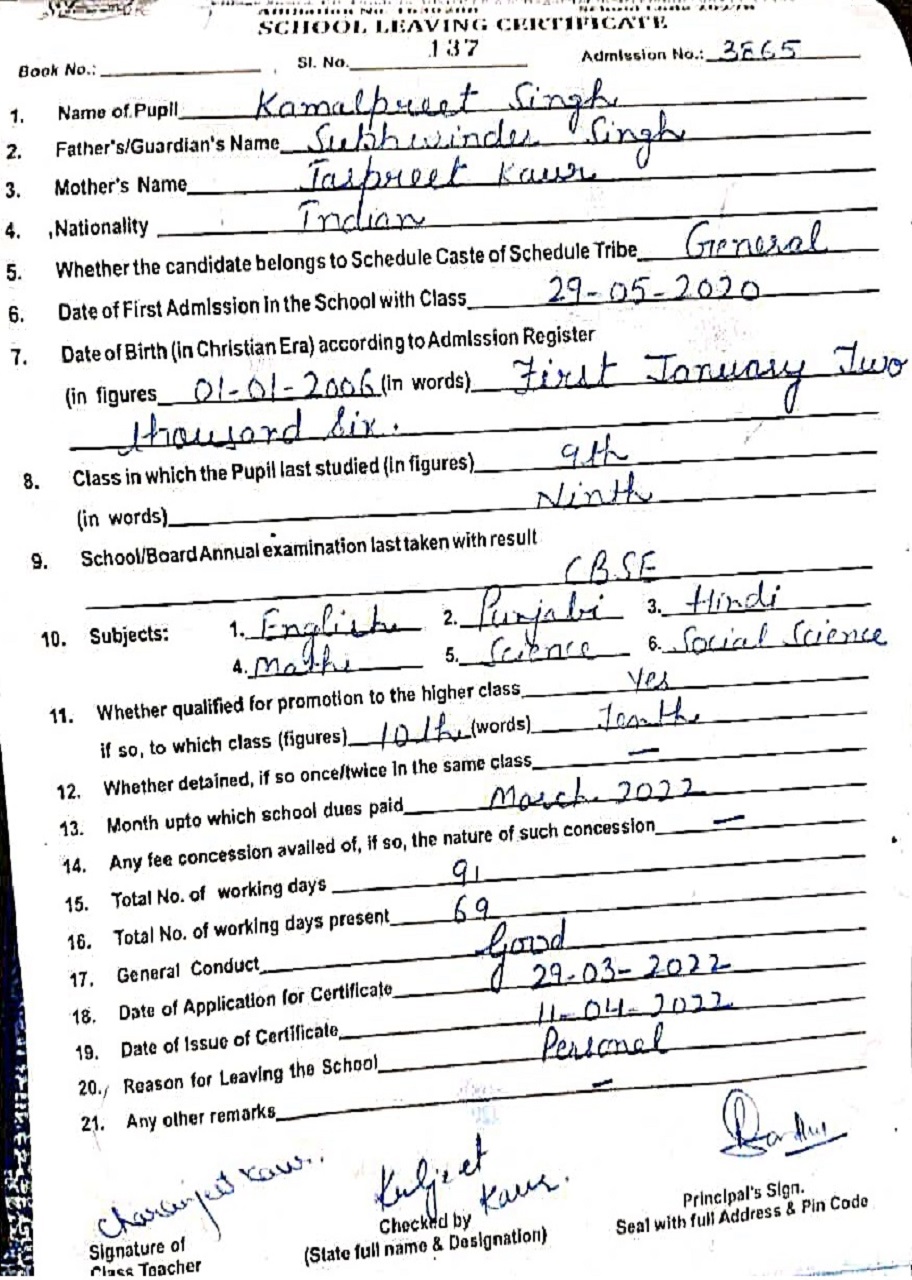 SCHOOL LEAVING CERTIFICATE
Book No.: Sl. No. 137 Admission No.: 3865
1. Name of Pupil Kamalpreet Singh
2. Father's/Guardian's Name Sukhwinder Singh
3. Mother's Name Jaspreet Kaur
4. Nationality Indian
5. Whether the candidate belongs to Schedule Caste of Schedule Tribe General
6. Date of First Admission in the School with Class 29-05-2020
7. Date of Birth (in Christian Era) according to Admission Register
(in figures 01-01-2006 (in words) First January Two
thousand Six.
8. Class in which the Pupil last studied (in figures) 9th
(in words) Ninth
9. School/Board Annual examination last taken with result
CBSE
10. Subjects: 1. English 2. Punjabi 3. Hindi
4. Maths 5. Science 6. Social Science
11. Whether qualified for promotion to the higher class Yes
if so, to which class (figures) 10th (words) Tenth
12. Whether detained, if so once/twice in the same class —
13. Month upto which school dues paid March 2022
14. Any fee concession availed of, if so, the nature of such concession —
15. Total No. of working days 91
16. Total No. of working days present 69
17. General Conduct Good
18. Date of Application for Certificate 29-03-2022
19. Date of Issue of Certificate 11-04-2022
20. Reason for Leaving the School Personal
21. Any other remarks —
Charanjeet Kaur. Kuljeet Kaur.
Signature of Class Teacher
Checked by
(State full name & Designation)
Principal's Sign.
Seal with full Address & Pin Code